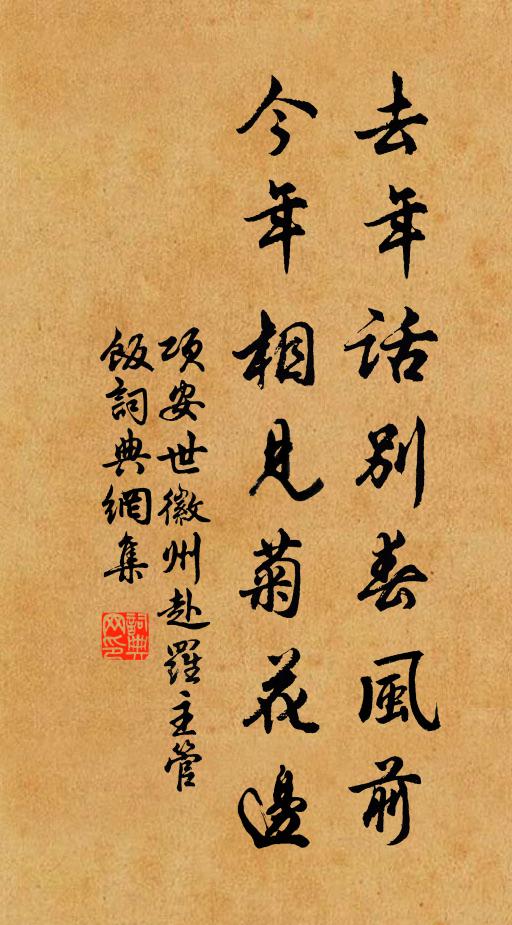 去年話別春風前
今年相見菊花邊
項安世徽州赴羅主管
飯詞典網集
詞典網印